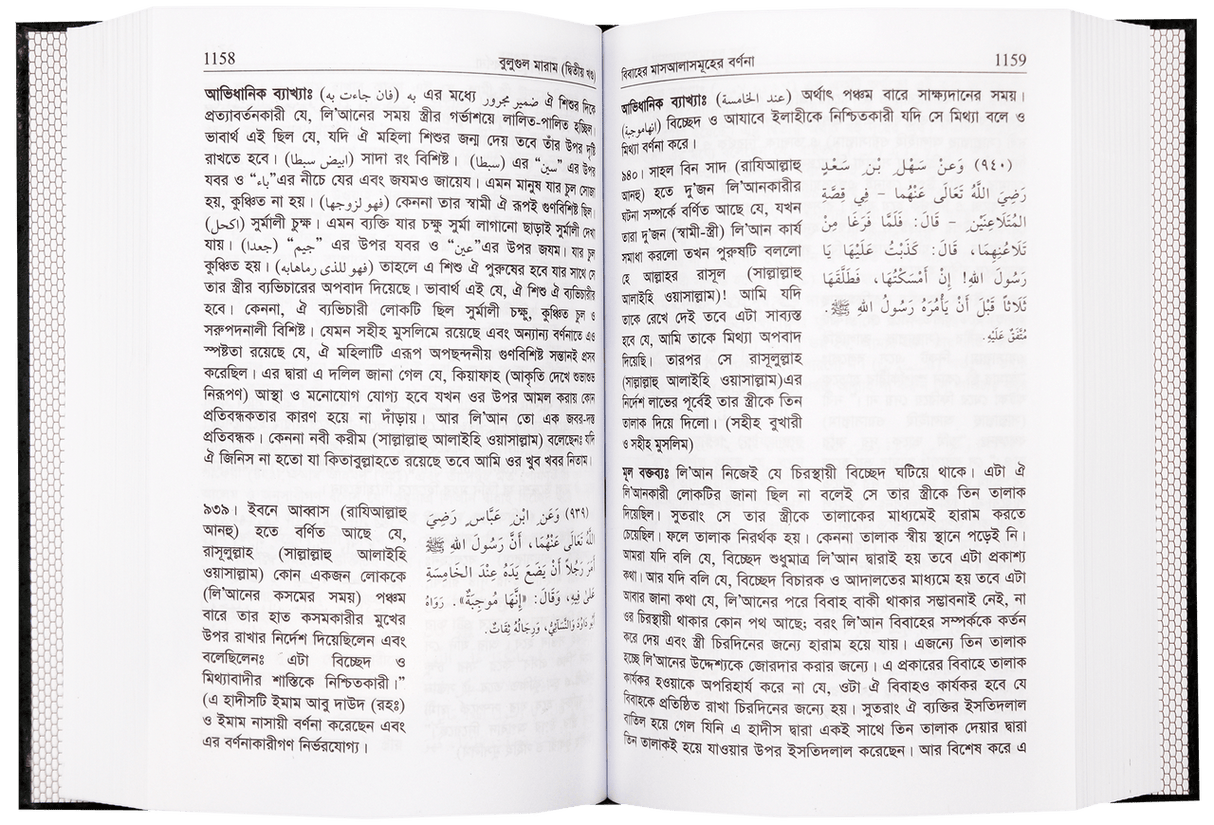 1158
বুলুগুল মারাম (দ্বিতীয় খণ্ড)
আভিধানিক ব্যাখ্যাঃ (فان جاءت به) به এর মধ্যে ضمير مجرور ঐ শিশুর দিকে
প্রত্যাবর্তনকারী যে, লি'আনের সময় স্ত্রীর গর্ভাশয়ে লালিত-পালিত হচ্ছিল।
ভাবার্থ এই ছিল যে, যদি ঐ মহিলা শিশুর জন্ম দেয় তবে তাঁর উপর দৃষ্টি
রাখতে হবে। (ابيض سبطا) সাদা রং বিশিষ্ট। (سبطا) এর “سين” এর উপর
যবর ও “باء”এর নীচে যের এবং জযমও জায়েয। এমন মানুষ যার চুল সোজা
হয়, কুঞ্চিত না হয়। (فهو لزوجها) কেননা তার স্বামী ঐ রূপই গুণবিশিষ্ট ছিল।
(اكحل) সুর্মালী চুক্ষ। এমন ব্যক্তি যার চক্ষু সুর্মা লাগানো ছাড়াই সুর্মালী দেখা
যায়। (جعدا) “جيم” এর উপর যবর ও “عين”এর উপর জযম। যার চুল
কুঞ্চিত হয়। (فهو للذى رماهابه) তাহলে এ শিশু ঐ পুরুষের হবে যার সাথে সে
তার স্ত্রীর ব্যভিচারের অপবাদ দিয়েছে। ভাবার্থ এই যে, ঐ শিশু ঐ ব্যভিচারীর
হবে। কেননা, ঐ ব্যভিচারী লোকটি ছিল সুর্মালী চক্ষু, কুঞ্চিত চুল ও
সরুপদনালী বিশিষ্ট। যেমন সহীহ মুসলিমে রয়েছে এবং অন্যান্য বর্ণনাতে এও
স্পষ্টতা রয়েছে যে, ঐ মহিলাটি এরূপ অপছন্দনীয় গুণবিশিষ্ট সন্তানই প্রসব
করেছিল। এর দ্বারা এ দলিল জানা গেল যে, কিয়াফাহ (আকৃতি দেখে শুভাশুভ
নিরূপণ) আস্থা ও মনোযোগ যোগ্য হবে যখন ওর উপর আমল করায় কোন
প্রতিবন্ধকতার কারণ হয়ে না দাঁড়ায়। আর লি'আন তো এক জবর-দস্ত
প্রতিবন্ধক। কেননা নবী করীম (সাল্লাল্লাহু আলাইহি ওয়াসাল্লাম) বলেছেনঃ যদি
ঐ জিনিস না হতো যা কিতাবুল্লাহতে রয়েছে তবে আমি ওর খুব খবর নিতাম।
৯৩৯। ইবনে আব্বাস (রাযিআল্লাহু
আনহু) হতে বর্ণিত আছে যে,
রাসূলুল্লাহ (সাল্লাল্লাহু আলাইহি
ওয়াসাল্লাম) কোন একজন লোককে
(লি'আনের কসমের সময়) পঞ্চম
বারে তার হাত কসমকারীর মুখের
উপর রাখার নির্দেশ দিয়েছিলেন এবং
বলেছিলেনঃ এটা বিচ্ছেদ ও
মিথ্যাবাদীর শাস্তিকে নিশ্চিতকারী।”
(এ হাদীসটি ইমাম আবু দাউদ (রহঃ)
ও ইমাম নাসায়ী বর্ণনা করেছেন এবং
এর বর্ণনাকারীগণ নির্ভরযোগ্য।
(٩٣٩) وَعَنِ ابْنِ عَبَّاسٍ رَضِيَ
اللَّهُ تَعَالَى عَنْهُمَا، أَنَّ رَسُولَ اللهِ ﷺ
أَمَرَ رَجُلاً أَنْ يَضَعَ يَدَهُ عِنْدَ الخَامِسَةِ
عَلَى فِيهِ، وَقَالَ: «إِنَّهَا مُوجِبَةٌ». رَوَاهُ
أَبُو دَاوُدَ وَالنَّسَائِيُّ، وَرِجَالُهُ ثِقَاتٌ.
বিবাহের মাসআলাসমূহের বর্ণনা
1159
আভিধানিক ব্যাখ্যাঃ (عند الخامسة) অর্থাৎ পঞ্চম বারে সাক্ষ্যদানের সময়।
(انهاموجبة) বিচ্ছেদ ও আযাবে ইলাহীকে নিশ্চিতকারী যদি সে মিথ্যা বলে ও
মিথ্যা বর্ণনা করে।
৯৪০। সাহল বিন সাদ (রাযিআল্লাহু
আনহু) হতে দু'জন লি'আনকারীর
ঘটনা সম্পর্কে বর্ণিত আছে যে, যখন
তারা দু'জন (স্বামী-স্ত্রী) লি'আন কার্য
সমাধা করলো তখন পুরুষটি বললো
হে আল্লাহর রাসূল (সাল্লাল্লাহু
আলাইহি ওয়াসাল্লাম)! আমি যদি
তাকে রেখে দেই তবে এটা সাব্যস্ত
হবে যে, আমি তাকে মিথ্যা অপবাদ
দিয়েছি। তারপর সে রাসূলুল্লাহ
(সাল্লাল্লাহু আলাইহি ওয়াসাল্লাম)এর
নির্দেশ লাভের পূর্বেই তার স্ত্রীকে তিন
তালাক দিয়ে দিলো। (সহীহ বুখারী
ও সহীহ মুসলিম)
(٩٤٠) وَعَنْ سَهْلِ بْنِ سَعْدٍ
رَضِيَ اللَّهُ تَعَالَى عَنْهُمَا - فِي قِصَّةِ
المُتَلَاعِنَيْنِ - قَالَ: فَلَمَّا فَرَغَا مِنْ
تَلَاعُنِهِمَا، قَالَ: كَذَبْتُ عَلَيْهَا يَا
رَسُولَ اللهِ! إِنْ أَمْسَكْتُهَا، فَطَلَّقَهَا
ثَلاثاً قَبْلَ أَنْ يَأْمُرَهُ رَسُولُ اللهِ ﷺ.
مُتَّفَقٌ عَلَيْهِ.
মূল বক্তব্যঃ লি'আন নিজেই যে চিরস্থায়ী বিচ্ছেদ ঘটিয়ে থাকে। এটা ঐ
লি'আনকারী লোকটির জানা ছিল না বলেই সে তার স্ত্রীকে তিন তালাক
দিয়েছিল। সুতরাং সে তার স্ত্রীকে তালাকের মাধ্যমেই হারাম করতে
চেয়েছিল। ফলে তালাক নিরর্থক হয়। কেননা তালাক স্বীয় স্থানে পড়েই নি।
আমরা যদি বলি যে, বিচ্ছেদ শুধুমাত্র লি'আন দ্বারাই হয় তবে এটা প্রকাশ্য
কথা। আর যদি বলি যে, বিচ্ছেদ বিচারক ও আদালতের মাধ্যমে হয় তবে এটা
আবার জানা কথা যে, লি'আনের পরে বিবাহ বাকী থাকার সম্ভাবনাই নেই, না
ওর চিরস্থায়ী থাকার কোন পথ আছে; বরং লি'আন বিবাহের সম্পর্ককে কর্তন
করে দেয় এবং স্ত্রী চিরদিনের জন্যে হারাম হয়ে যায়। এজন্যে তিন তালাক
হচ্ছে লি'আনের উদ্দেশ্যকে জোরদার করার জন্যে। এ প্রকারের বিবাহে তালাক
কার্যকর হওয়াকে অপরিহার্য করে না যে, ওটা ঐ বিবাহও কার্যকর হবে যে
বিবাহকে প্রতিষ্ঠিত রাখা চিরদিনের জন্যে হয়। সুতরাং ঐ ব্যক্তির ইসতিদলাল
বাতিল হয়ে গেল যিনি এ হাদীস দ্বারা একই সাথে তিন তালাক দেয়ার দ্বারা
তিন তালাকই হয়ে যাওয়ার উপর ইসতিদলাল করেছেন। আর বিশেষ করে এ